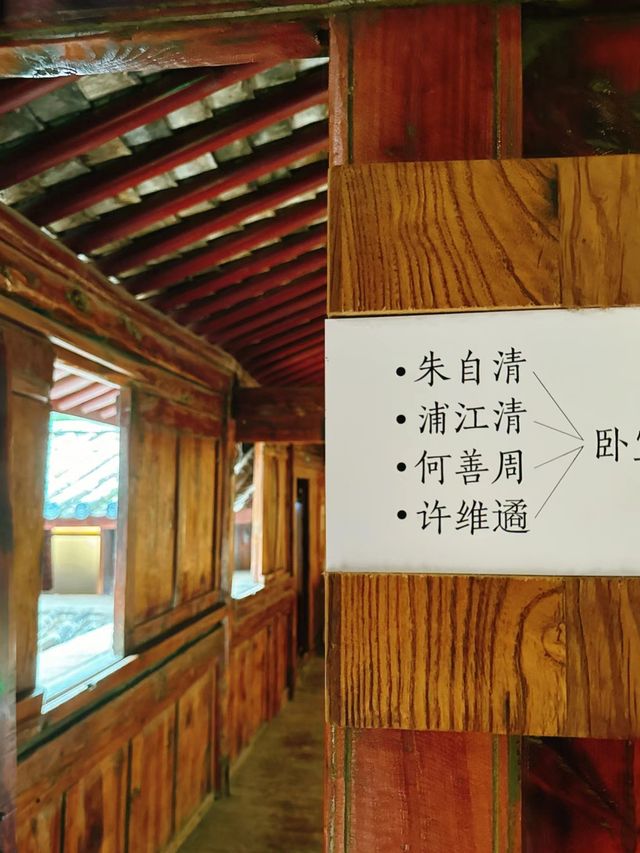 朱自清
浦江清
何善周
许维遹
卧